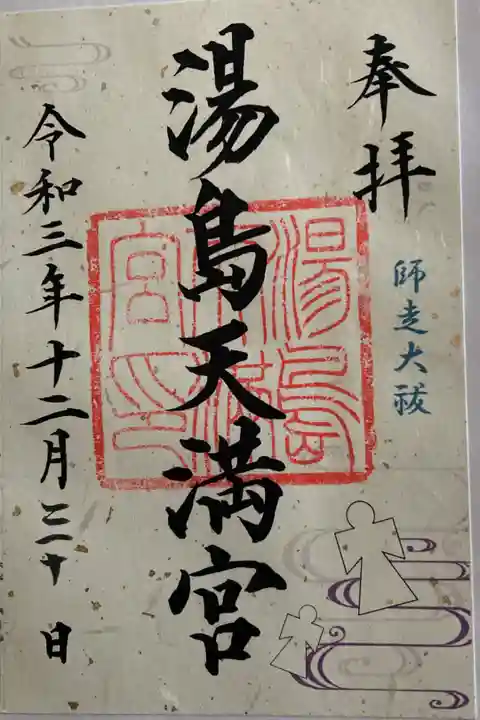 奉拝
師走大祓
湯島天満宮
湯島
天満
宮印
令和三年十二月 日